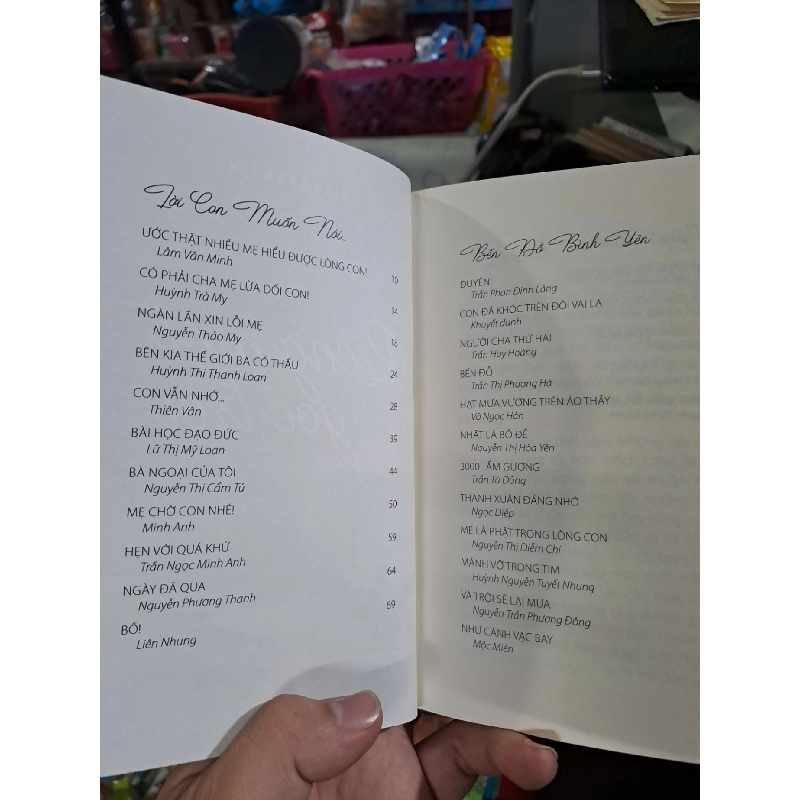 Lời Con Muốn Nói...
ƯỚC THẬT NHIỀU MẸ HIỂU ĐƯỢC LÒNG CON!
Lâm Văn Minh
10
CÓ PHẢI CHA MẸ LỪA DỐI CON!
Huỳnh Trà My
14
NGÀN LẦN XIN LỖI MẸ
Nguyễn Thảo My
18
BÊN KIA THẾ GIỚI BA CÓ THẤU
Huỳnh Thị Thanh Loan
24
CON VẪN NHỚ...
Thiên Vân
28
BÀI HỌC ĐẠO ĐỨC
Lữ Thị Mỹ Loan
39
BÀ NGOẠI CỦA TÔI
Nguyễn Thị Cẩm Tú
44
MẸ CHỜ CON NHÉ!
Minh Anh
50
HẸN VỚI QUÁ KHỨ
Trần Ngọc Minh Anh
59
NGÀY ĐÃ QUA
Nguyễn Phương Thanh
64
BỐ!
Liên Nhung
69
Bến Đỗ Bình Yên
DUYÊN
Trần Phan Đình Lăng
CON ĐÃ KHÓC TRÊN ĐÔI VAI LẠ
Khuyết danh
NGƯỜI CHA THỨ HAI
Trần Huy Hoàng
BẾN ĐỖ
Trần Thị Phương Hà
HẠT MƯA VƯƠNG TRÊN ÁO THẦY
Võ Ngọc Hân
NHẶT LÁ BỒ ĐỀ
Nguyễn Thị Hòa Yên
3000 TẤM GƯƠNG
Trần Tú Dũng
THANH XUÂN ĐÁNG NHỚ
Ngọc Diệp
MẸ LÀ PHẬT TRONG LÒNG CON
Nguyễn Thị Diễm Chi
MẢNH VỠ TRONG TIM
Huỳnh Nguyễn Tuyết Nhung
VÀ TRỜI SẼ LẠI MƯA
Nguyễn Trần Phương Đông
NHƯ CÁNH VẠC BAY
Mộc Miên